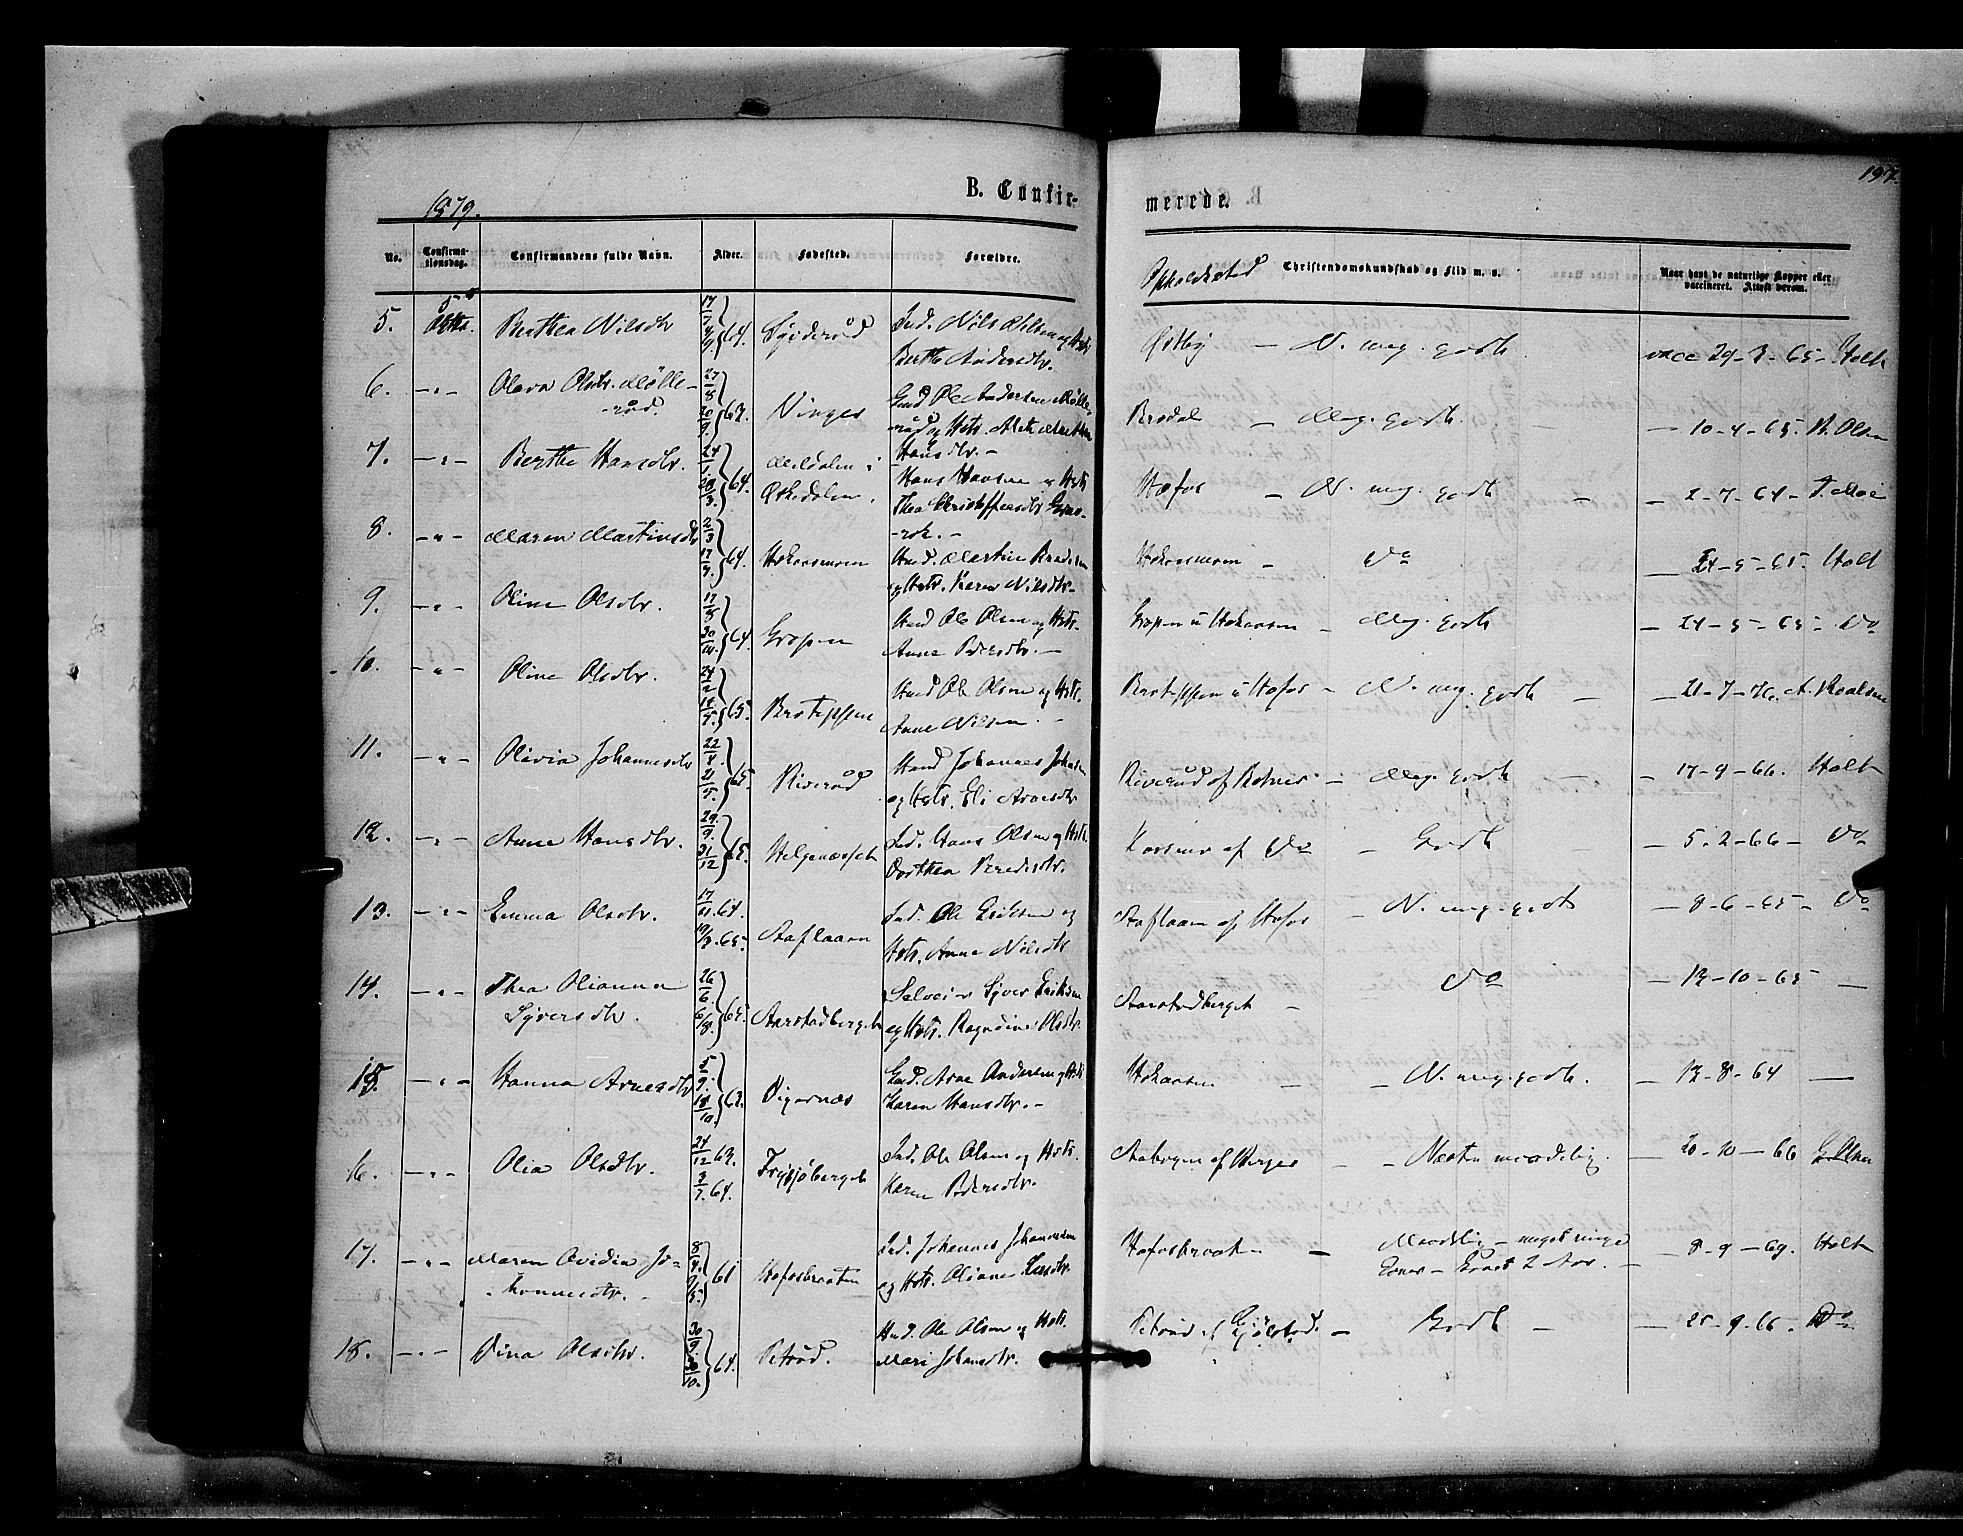 197.
1879.
B. Confir-
merede.
No.
Confirma-
tionsdag.
Confirmandens fulde Navn.
Alder.
Fødested.
Forældre.
Opholdssted
Christendomskundskab og Flid m. v.
Naar havt de naturlige Kopper eller
vaccineret. Attest derom.
5. 5 Octbr. Berthea Nilsdtr 17/7 4/9 64. Ind. Nils Nilsen og Hstr
Berthe Andersdtr.
Østby - N. meg. godt vacc 29-3-65- Holt
6. -"- Olava Olsdtr. Mølle-
-rød. 27/8 20/9. 63. Vinger Gmd Ole Andersen Mølle-
rød og Hstr.
Hansdtr. -
Brødal - Meg. godt. - 10-4-65. N. Olsen
7. -"- Berthe Hansdtr. 24/1. 28/3. 64. i
Hans Hansen og Hstr
Thea Christoffersdtr
Høfos - N. meg. godt - - 2-7-64-
8. -"- Maren Martinsdtr 2/3 17/9. 64. Hokaasmoen Hmd. Martin
og Hstr. Karen Nilsdtr. -
Hokaasmoen - Do - 24-5-65- Holt
9. -"- Oline Olsdtr. 17/8 30/10. 64. Gropen Hmd Ole Olsen og Hstr.
Anne Pedersdtr. -
Gropen u Hokaasen - Meg. godt - 24-5-65- Do
10. -"- Oline Olsdtr. 24/2 14/5. 65. Hmd Ole Olsen og Hstr.
Anne Nilsen -
u Høfos - N. meg. godt - - 21-7-76.
11. -"- Olavia Johannesdtr 22/4. 21/5. 65. Riverød Hmd Johannes
og Hstr. Eli Arnesdtr
Riverud af - Meg. godt - - 17-9-66. Holt
12. -"- Anne Hansdtr. 29./9. 31/12 65. Helgenæsset Ind. Hans Olsen og Hstr.
Dorthea
af Do - Godt - - 5-2-66- Do
13. -"- Emma Olsdtr. 17/11. 64. 19/3. 65. Aaflaaen Ind. Ole Eriksen og
Hstr. Anne Nilsdtr
Aaflaaen af Høfos - N. meg. godt - 8-6-65- Do
14. -"- Thea Olianna
Syversdtr. 26/6. 6/8. 65. Aarstadberget Selveier Syver Eriksen
og Hstr. Olsdtr.
Aarstadberget - Do - 12-10-65 -
15. -"- Hanna Arnesdtr 5/9. 18/10. 63. Digernæs Gmd. Arne Andersen og Hstr
Karen Hansdtr. -
Hokaasen - - N. meg. godt. - 12-8-64 -
16. -"- Olia Olsdtr. 24/12 63. 3/7. 64. Frysjøberget Ind. Ole Olsen og Hstr.
Karen Pedersdtr.
Aabogen af Berger - - Næsten maadelig. - 20-10-66
17. -"- Maren Ovidia Jo-
hannesdtr. - 8/4. 9/5. 61 Høfosbraaten Ind. Johannes Johannesen
og Hstr. Oliane Larsdtr.
Høfosbraaten - Maadelig - meget ringe
Evner - Prøvet 2 Aar. - - 8-9-69. Holt
18. -"- Dina Olsdtr. 30/9. 30/10. 64. Petrød. Hmd. Ole Olsen og Hstr.
Mari Johansdtr.
Petrød af Gjølstad. - Godt - - 25-9-66. Do